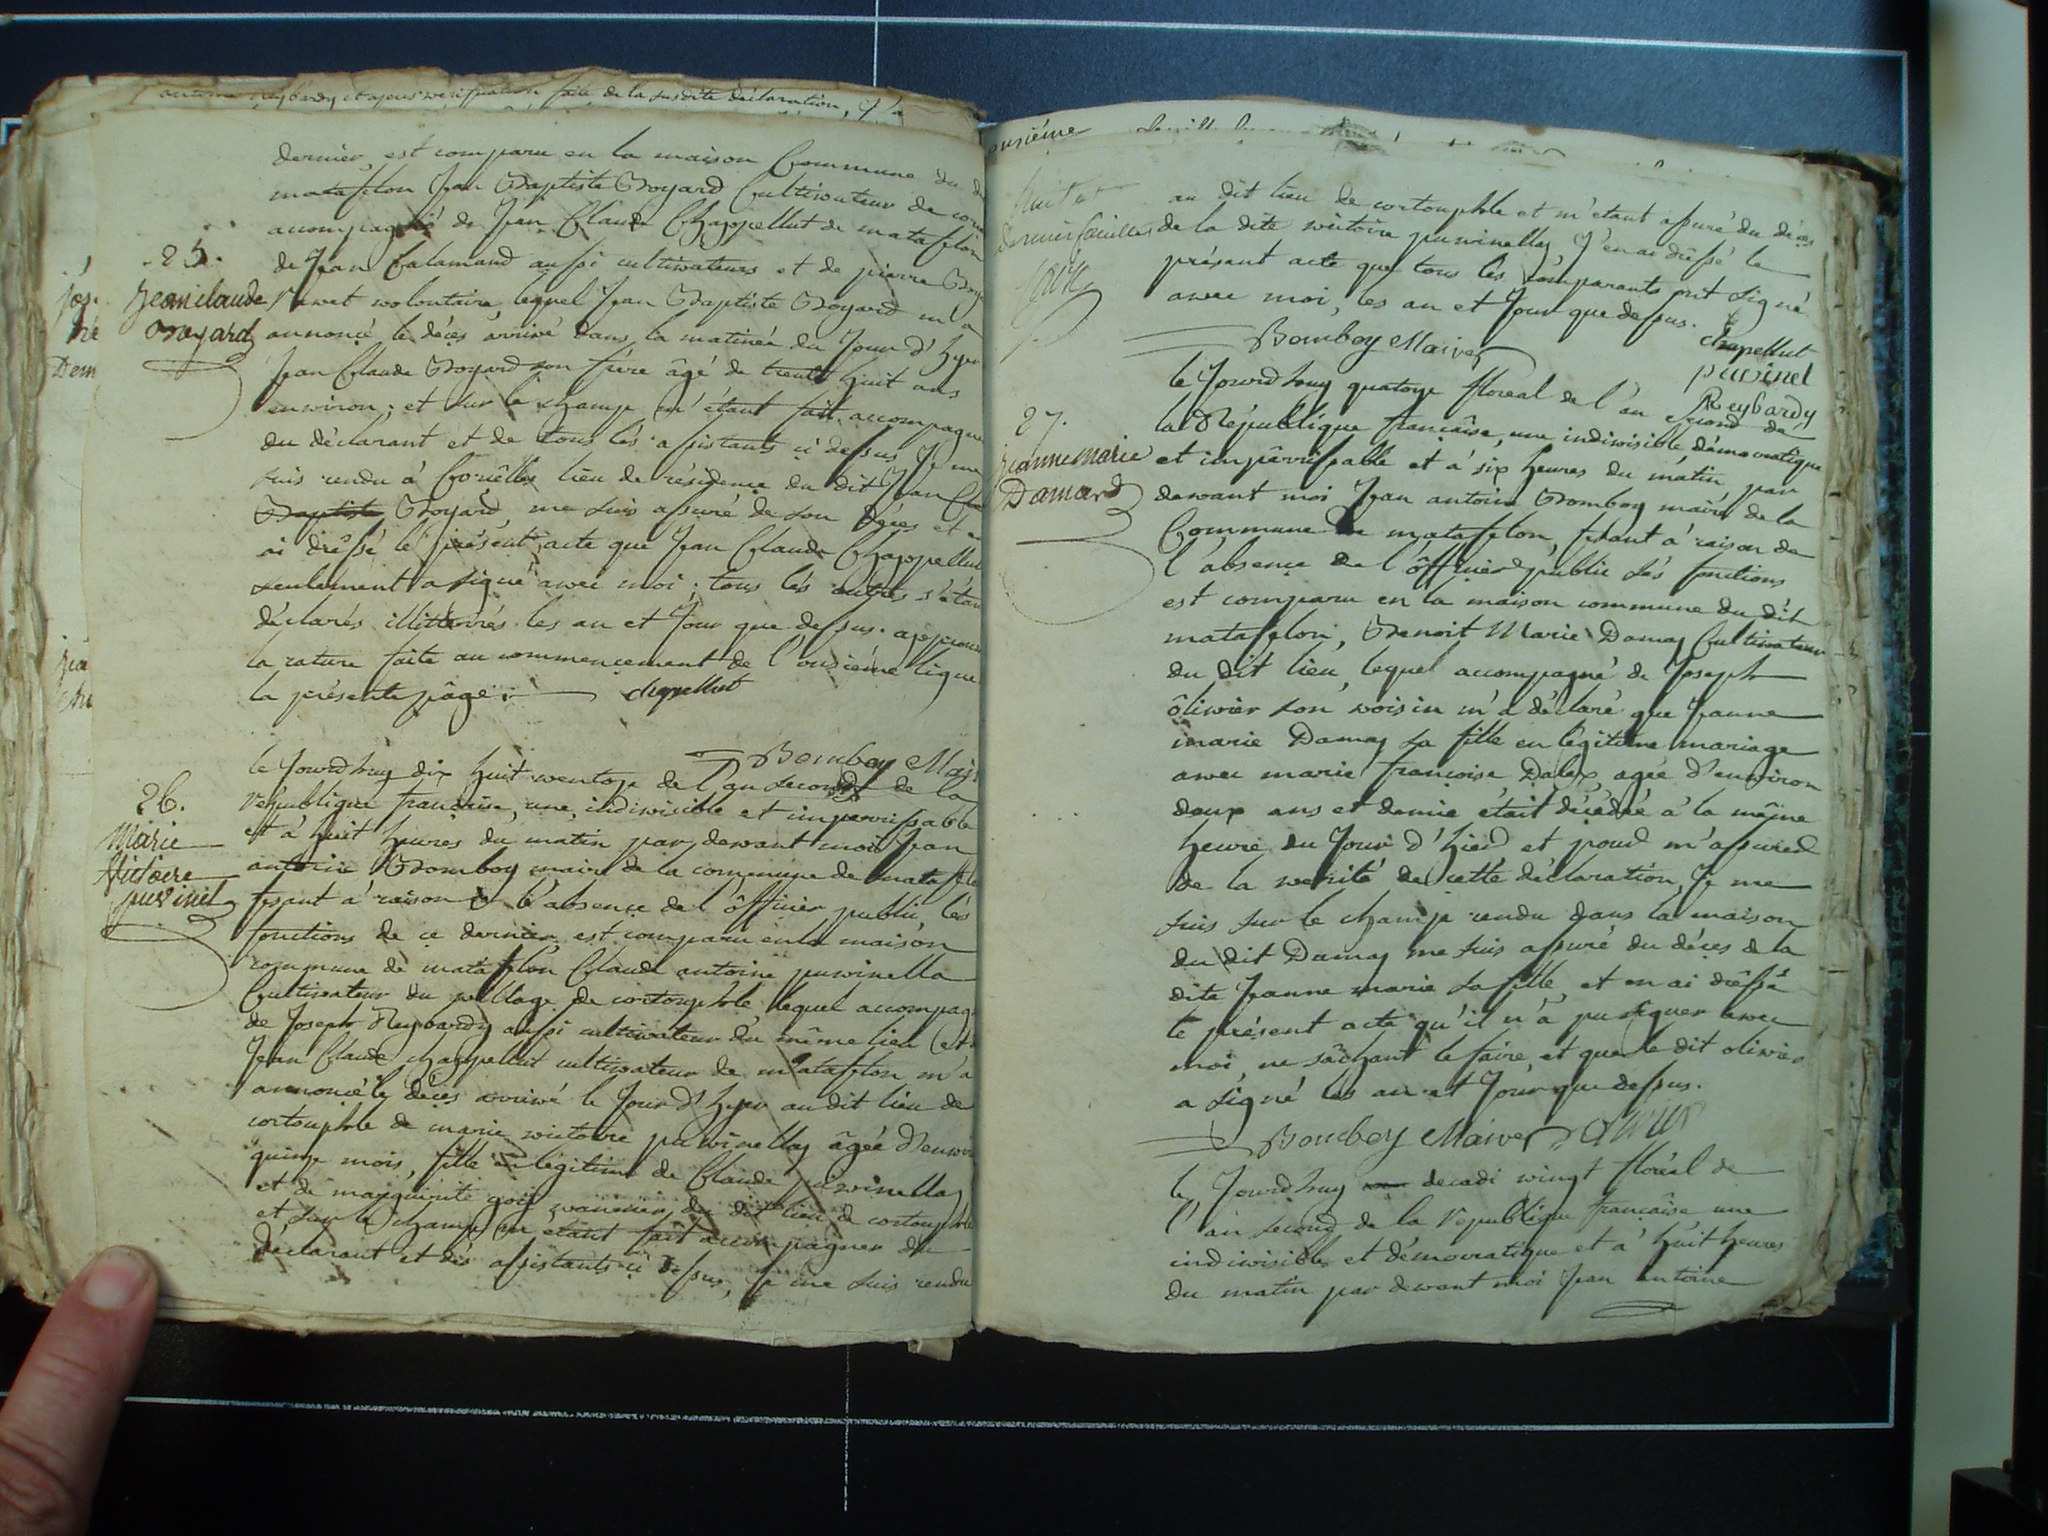 antoine Reybardy et apres verification faite de la susdite déclaration, J'a
dernier, est comparu en la maison Commune du dit
matafelon Jean Baptiste Boyard Cultivateur de
accompagné de Jean Claude Chappellut de matafelon
de Jean Calamand aussi cultivateurs et de pierre
25.
Jean claude
Boyard
volontaire lequel Jean Baptiste Boyard m'a
annoncé le déces arrivé dans la matinée du Jour d'hyer
Jean Claude Boyard son frére âgé de trente huit ans
environ; et sur le champ m'étant fait accompagner
du déclarant et de tous lés assistants ci dessus Je me
suis rendu à lieu de résidence du dit Jean Cla
Baptiste Boyard, me suis assuré de son déces et
ai dréssé le présent acte que Jean Claude Chappellut
seulement a signé avec moi; tous lés autres s'étant
déclarés illitterrés les an et Jour que dessus.
la rature faite au commencement de l'onsiéme ligne
la présente page. chapellut
Bomboy Maire
26.
Marie
Victoire
puvinel
le Jourdhuy dix huit ventose de l'an second de la
République française, une, indivisible et imperrissable
et à huit heures du matin par devant moi Jean
antoine Bomboy maire de la commune de matafelon
fesant à raison de l'absençe de l'ôfficier public lés
fonctions de ce dernier est comparu en la maison
commune de matafelon Claude antoine puvinella
Cultivateur du village de cortouphle lequel accompag
de Joseph Reybardy aussi cultivateur du même lieu et
Jean Claude chappellut cultivateur de matafelon m'a
annoncé le déces arrivé le Jour d'hyer au dit lieu de
cortouphle de marie victoire puvinellaz âgée d'envir
quinze mois, fille en légitime de Claude puvinellaz
et de marguérite du dit lieu de cortouphle
et sur le champ m'étant fait accompagner du
déclarant et dés assistants ci dessus, Je me suis rendu
onsiéme
huit et
dernier feuillet
au dit lieu de cortouphle et m'etant assuré du déces
de la dite victoire puvinellaz J'en ai dréssé le
présent acte que tous lés comparants ont signé
avec moi, les an et Jour que dessus.
Bomboy Maire
chapellut
puvinel
Reybardy
27.
Jeanne marie
Damaz
le Jourdhuy quatorze floréal de l'an second de
la République française, une indivisible démocratique
et impérrissable et à six heures du matin par
devant moi Jean antoine Bomboy maire de la
Commune de matafelon, fesant à raison de
l'absençe de l'ôfficier public sés fonctions
est comparu en la maison commune du dit
matafelon, Benoit Marie Damaz Cultivateur
du dit lieu, lequel accompagné de Joseph
ôlivier son voisin m'a déclaré que Jeanne
marie Damaz sa fille en légitime mariage
avec marie françoise Dalex agée d'environ
deux ans et demie était décédée à la même
heure du Jour d'hier et pour m'assurer
de la verité de cette déclaration, Je me
suis sur le champ rendu dans la maison
du dit Damaz me suis assuré du déces de la
dite Jeanne marie sa fille et en ai dréssé
le présent acte qu'il n'à pu signer avec
moi, ne sâchant le faire, et que le dit olivier
a signé lés an et Jour que dessus.
Bomboy Maire Olivier
le Jourdhuy decadi vingt floréal de
l'an second de la République française une
indivisible et démocratique et à huit heures
du matin par devant moi Jean antoine